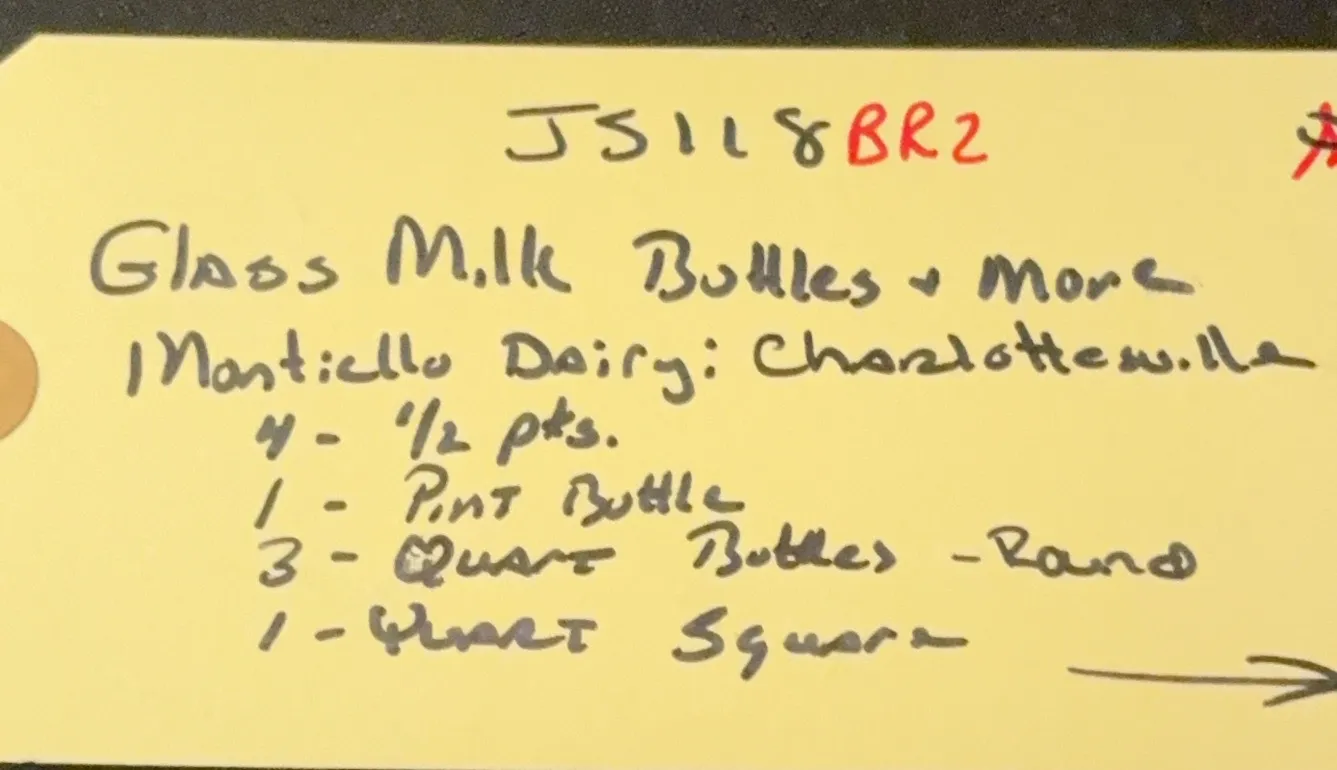 JS118 BR2
Glass Milk Bottles + More
Monticello Dairy: Charlottesville
4 - 1/2 pts.
1 - Pint Bottle
3 - Quart Bottles - Round
1 - Quart Square